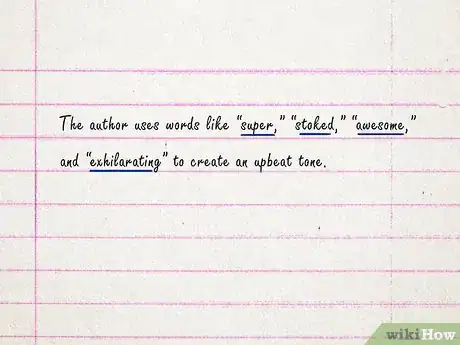 The author uses words like “super,” “stoked,” “awesome,”
and “exhilarating” to create an upbeat tone.
wikiHow